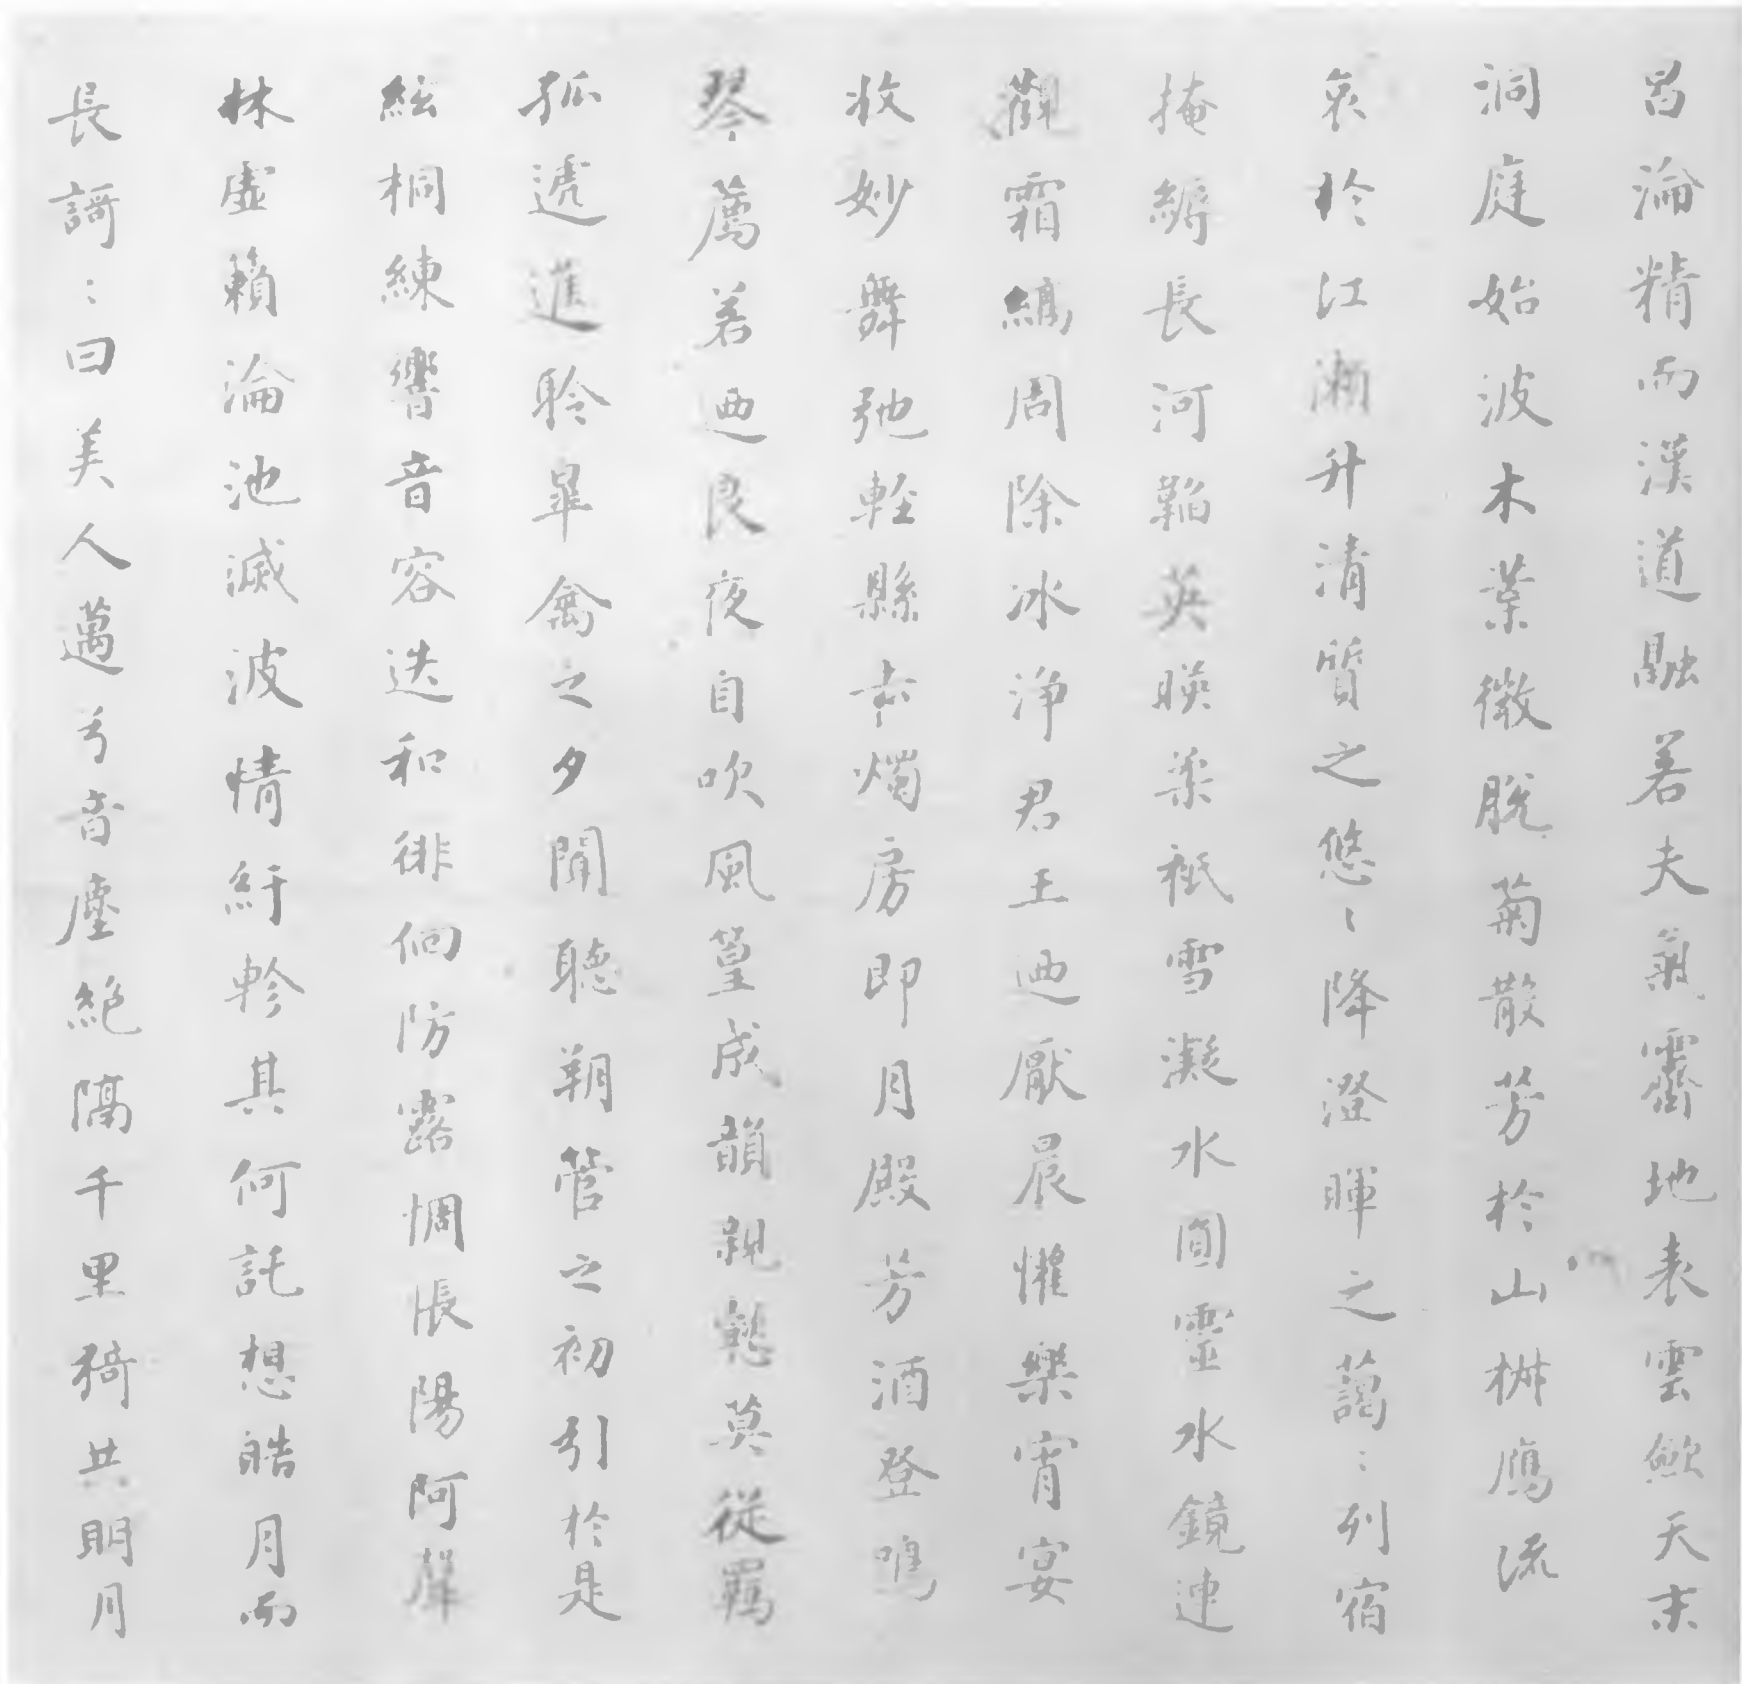 昌淪精而漢道融若夫氣霽地表雲斂天末
洞庭始波木葉微脫菊散芳於山椒鴈流
哀於江瀨升清質之悠〻降澄暉之藹〻列宿
掩縟長河韜英暎柔祇雪凝水圓靈水鏡連
觀霜縞周除冰淨君王迺厭晨懽樂宵宴
收妙舞弛輕縣去燭房即月殿芳酒登鳴
琴薦若迺良夜自吹風篁成韻親懿莫從羈
孤遞進聆皐禽之夕聞聽朔管之初引於是
絃桐練響音容迭和徘徊防露惆悵陽阿聲
林虛籟淪池滅波情紆軫其何託想皓月而
長謌〻曰美人邁兮音塵絕隔千里猗共明月